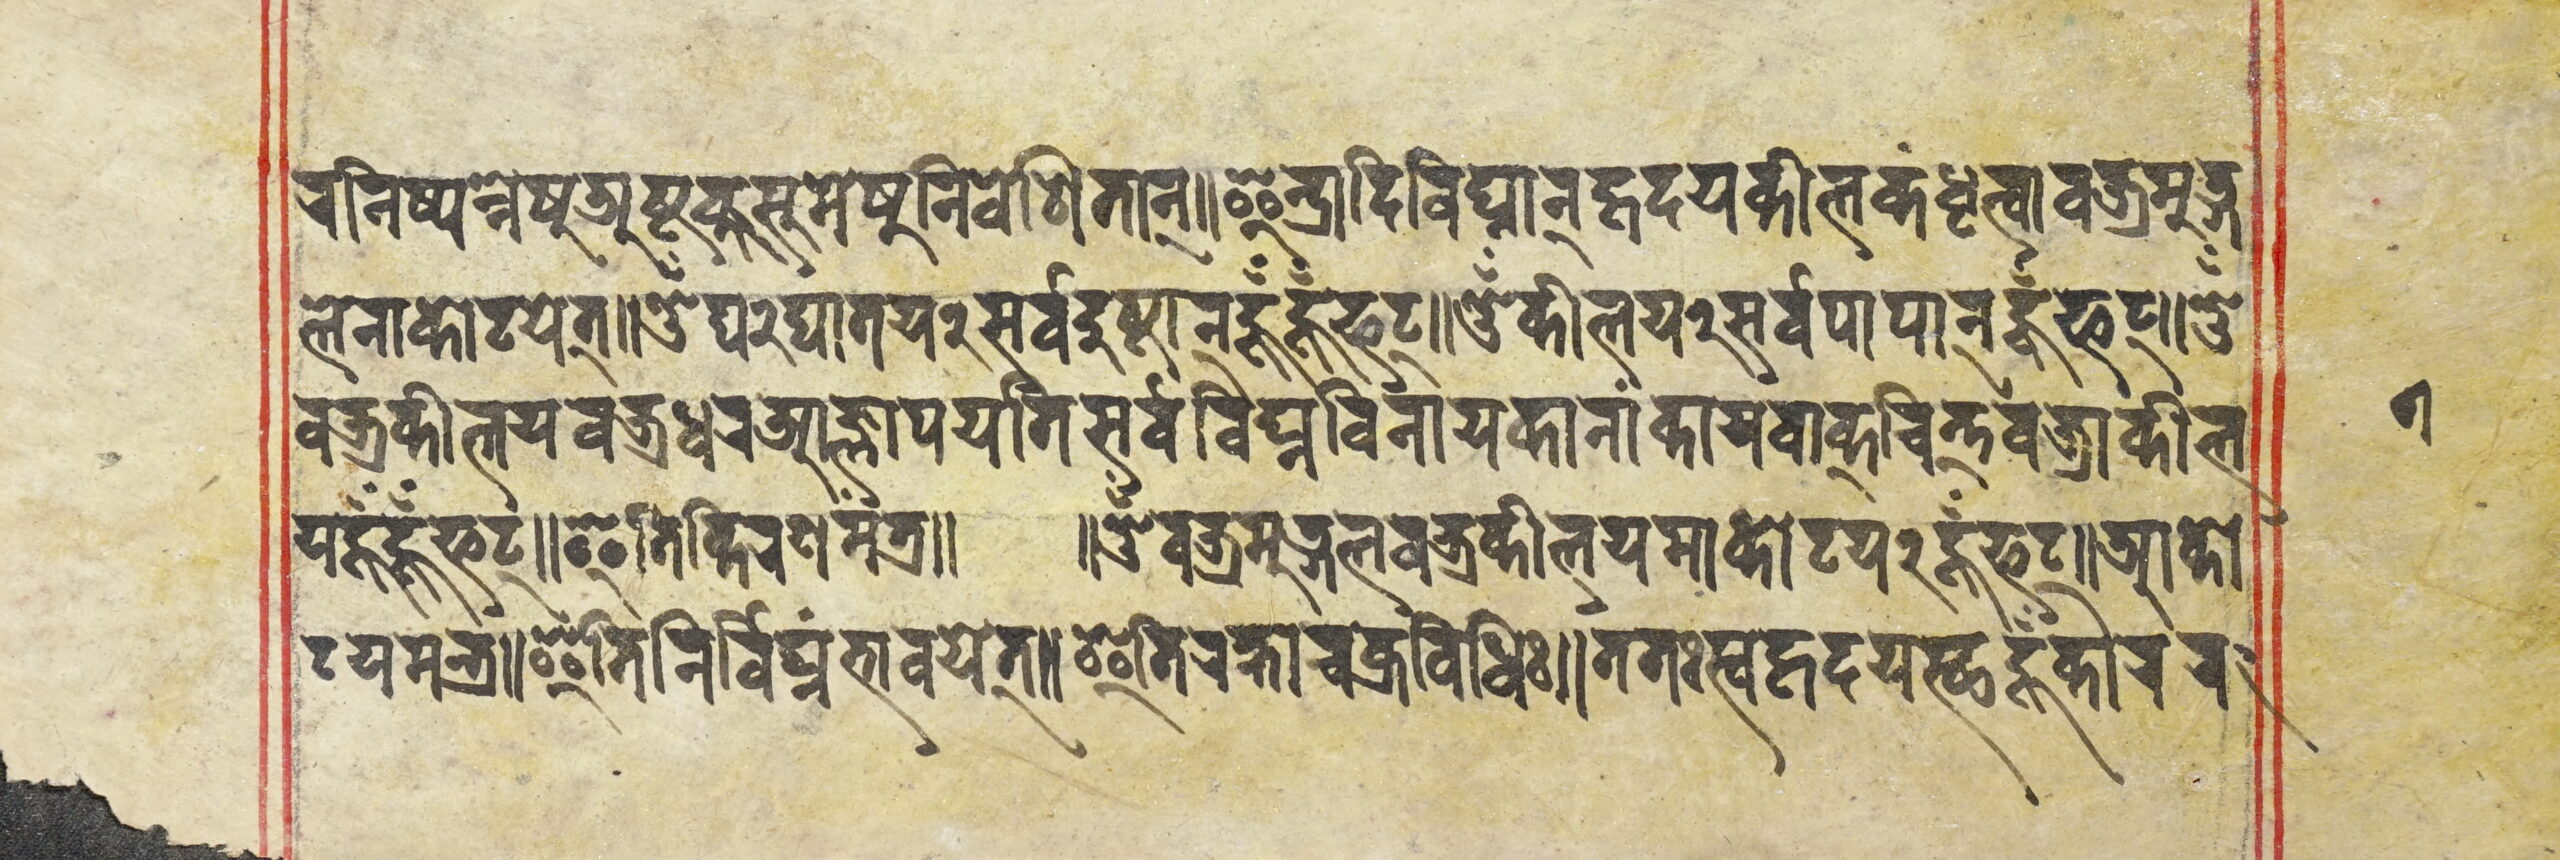 रनिष्पन्नेषुअष्टकुसुमेषुनिवेशितान्॥इन्द्रादिविघ्नान्हृदयकीलकंधृत्वावज्रमुद्ग
लेनाकोटयेत्॥ॐघ२घातय२सर्वदुष्टान्हूँहूँफट्॥ॐकीलय२सर्वपापान्हूँफट्॥ॐ
वज्रकीलयवज्रधरआज्ञापयतिसर्वविघ्नविनायकानांकायवाक्चित्तवज्रांकील
यहूँहूँफट्॥इतिकिरणमंत्र॥ ॥ॐवज्रमुद्गलवज्रकीलयमाकोटय२हूँफट्॥आको
टयमन्त्र॥इतिनिर्विघ्नंभावयेत्॥इतिरक्षाचक्रविधिः॥ततःस्वहृदयस्थहूँकीरर२
१